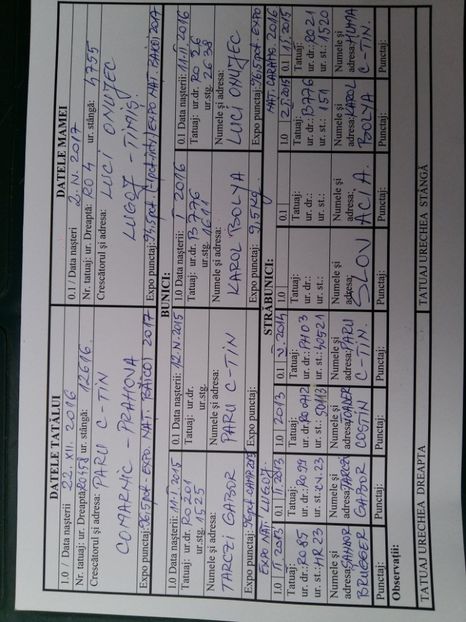 DATELE TATALUI
1.0 / Data nașterii 22. XII. 2016
Nr. tatuaj: ur. Dreaptă: RO158 ur. stângă: 12616
Crescătorul și adresa: PARU C-TIN
COMARNIC - PRAHOVA
Expo punctaj: 96.5pct - EXPO. NAT. BĂICOI 2017
DATELE MAMEI
0.1 / Data nașterii 2. IV. 2017
Nr. tatuaj: ur. Dreaptă: RO 4 ur. stângă: 4755
Crescătorul și adresa: LUCI ONUȚEC
LUGOJ - TIMIȘ!
Expo punctaj: EXPO NAT. BAICOI 2017
BUNICI:
1.0 Data nașterii: 11.I 2015
Tatuaj: ur.dr: RO201
ur.stg. 1525
Numele și adresa:
TARCZI GABOR
Expo punctaj:
EXPO NAT. LUGOJ
0.1 Data nașterii: 12.IV.2015
Tatuaj: ur.dr.
ur.stg.
Numele și adresa:
PARU C-TIN
Expo punctaj:
1.0 Data nașterii: I 2016
Tatuaj: ur.dr: B776
ur.stg. 1611
Numele și adresa:
KAROL BOLYA
Expo punctaj: 9,5kg.
0.1 Data nașterii: 11.II 2016
Tatuaj: ur.dr: RO 26
ur.stg. 2638
Numele și adresa:
LUCI ONUȚEC
Expo punctaj: 96,5pct. EXPO
NAT. CARANS. 2016
STRĂBUNICI:
1.0 II 2013
Tatuaj:
ur. dr.: RO85
ur. st.: HR23
Numele și
adresa: SANDOR
BRUGGER
Punctaj:
0.1 II. 2013
Tatuaj:
ur. dr.: RO99
ur. st.: EN.23
Numele și
adresa: TARCZI
GABOR
Punctaj:
1.0 2013
Tatuaj:
ur. dr.:
ur. st.: SD113
Numele și
adresa:
COSTIN
Punctaj:
0.1 IV. 2014
Tatuaj:
ur. dr.: PA103
ur. st.: 40521
Numele și
adresa: PARU
C-TIN.
Punctaj:
1.0
Tatuaj:
ur. dr.:
ur. st.:
Numele și
adresa:
SLOV
Punctaj:
0.1
Tatuaj:
ur. dr.:
ur. st.:
Numele și
adresa,
ACIA.
Punctaj:
1.0 2.I 2015
Tatuaj:
ur. dr.: B776
ur. st.: 151
Numele și
adresa: KAROL
BOLYA
Punctaj:
0.1 1.I. 2015
Tatuaj:
ur. dr.: RO21
ur. st.: 1520
Numele și
adresa: HUMA
C-TIN.
Punctaj:
Observații:
TATUAJ URECHEA DREAPTA
TATUAJ URECHEA STÂNGĂ